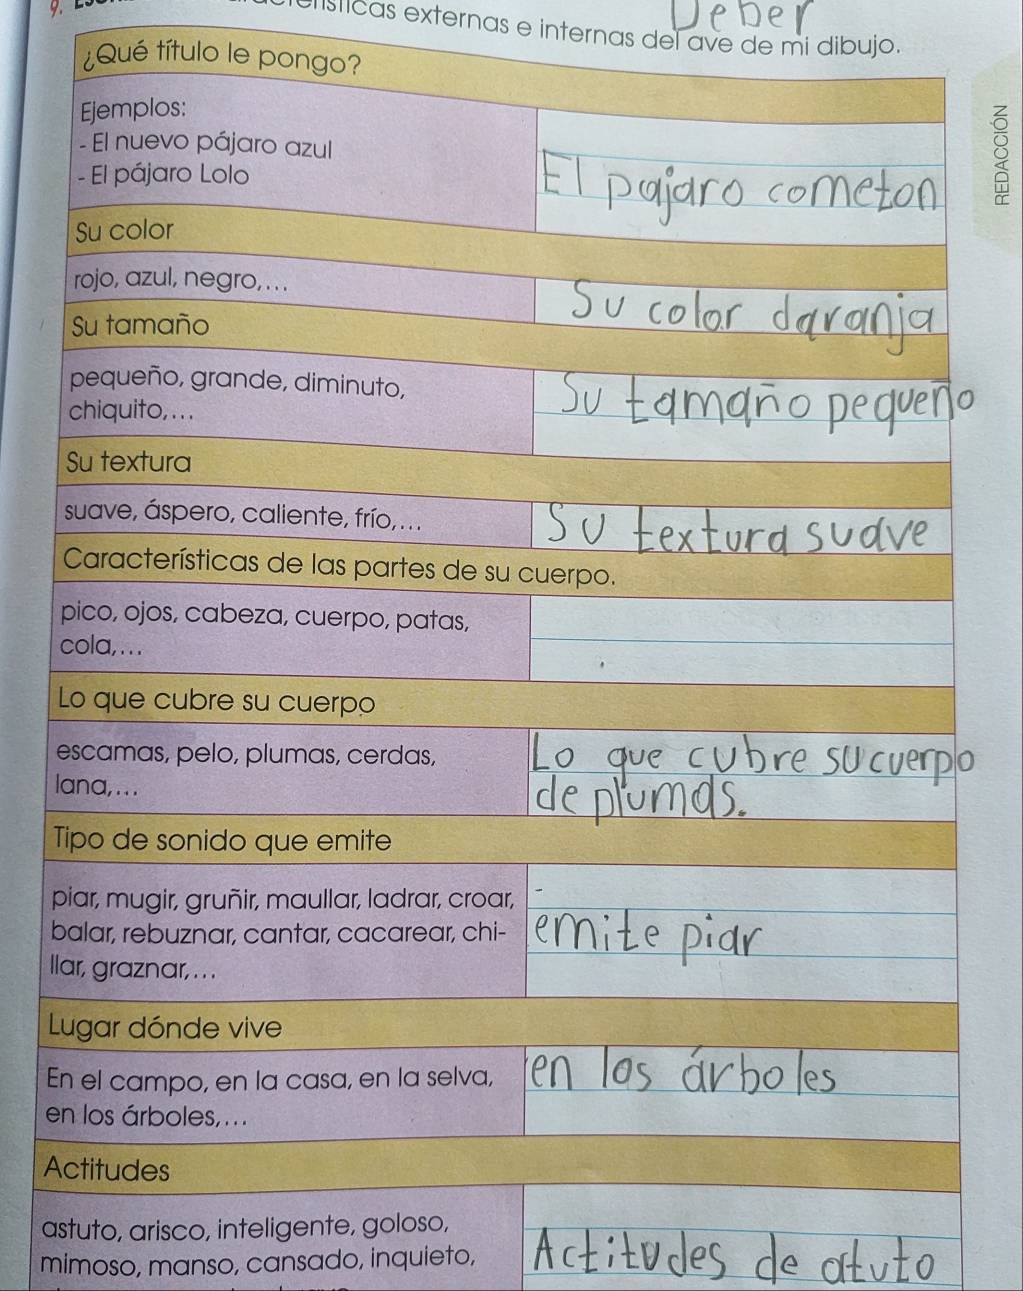 Deber
9.
externas e internas del ave de mi dibujo.
¿Qué título le pongo?
Ejemplos:
- El nuevo pájaro azul
- El pájaro Lolo
El pajaro cometon
REDACCIÓN
Su color
rojo, azul, negro,...
Su color daranja
Su tamaño
pequeño, grande, diminuto,
chiquito,...
Su tamaño pequeño
Su textura
suave, áspero, caliente, frío,...
Su textura suave
Características de las partes de su cuerpo.
pico, ojos, cabeza, cuerpo, patas,
cola,...
Lo que cubre su cuerpo
escamas, pelo, plumas, cerdas,
lana,...
Lo que cubre su cuerpo
de plumas.
Tipo de sonido que emite
piar, mugir, gruñir, maullar, ladrar, croar,
balar, rebuznar, cantar, cacarear, chi-
llar, graznar,...
emite piar
Lugar dónde vive
En el campo, en la casa, en la selva,
en los árboles,...
en los árboles
Actitudes
astuto, arisco, inteligente, goloso,
mimoso, manso, cansado, inquieto,
Actitudes de atuto